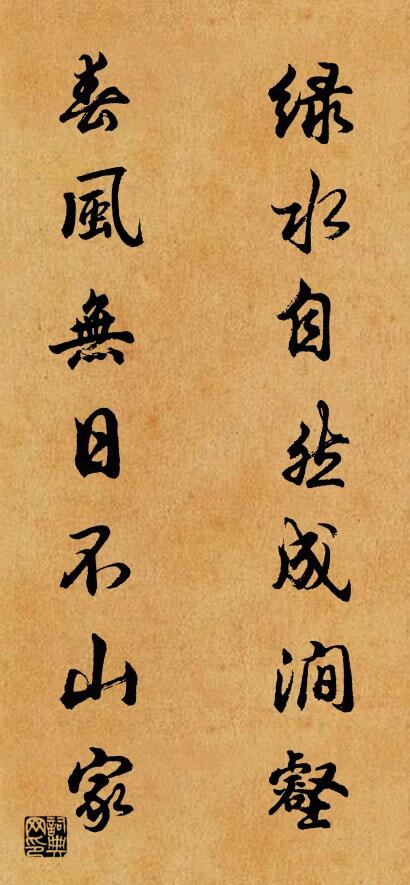 綠水自然成澗壑
春風無日不山家
詞典网印